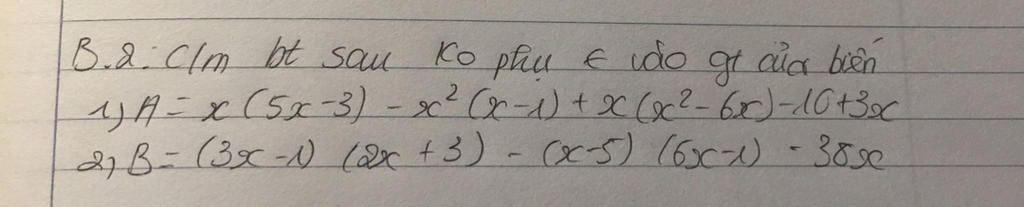 B.2: C/m bt sau ko phụ ∈ vào gt của biến
1) A = x (5x - 3) - x² (x - 1) + x (x² - 6x) - 10 + 3x
2) B = (3x - 1) (2x + 3) - (x - 5) (6x - 1) - 38x